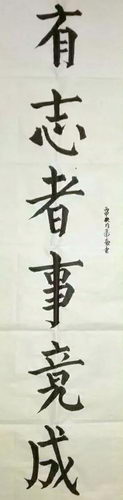 有志者事竟成